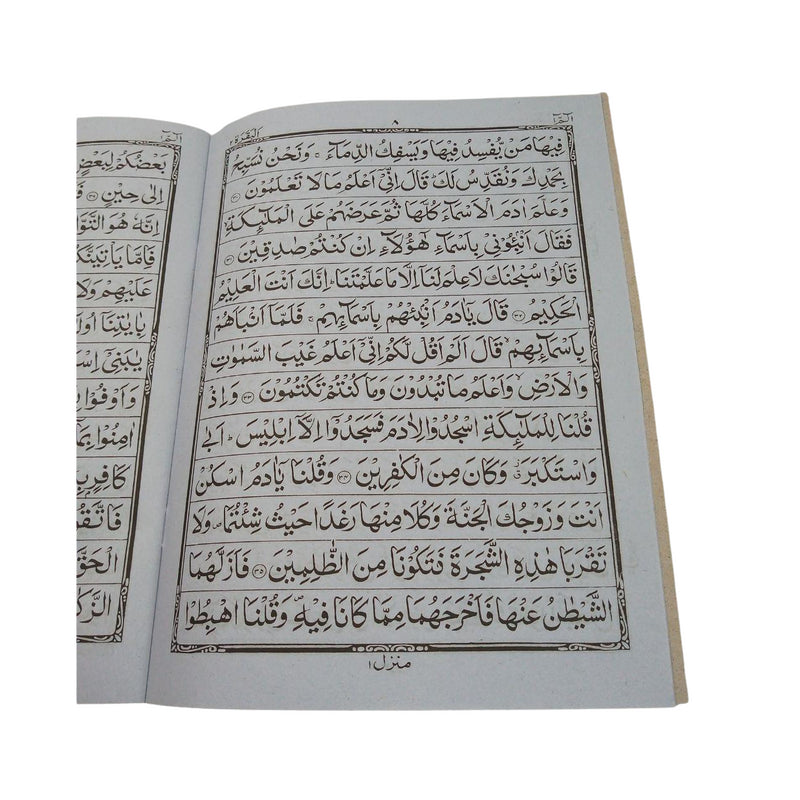 الٓمّٓ ١
٨
البقرة ٢
فِيْهَا مَنْ يُّفْسِدُ فِيْهَا وَيَسْفِكُ الدِّمَآءَ ۚ وَنَحْنُ نُسَبِّحُ
بِحَمْدِكَ وَنُقَدِّسُ لَكَ ؕ قَالَ اِنِّيْٓ اَعْلَمُ مَا لَا تَعْلَمُوْنَ ۝۳۰
وَعَلَّمَ اٰدَمَ الْاَسْمَآءَ كُلَّهَا ثُمَّ عَرَضَهُمْ عَلَى الْمَلٰٓئِكَةِ ۙ
فَقَالَ اَنْۢبِـُٔوْنِيْ بِاَسْمَآءِ هٰٓؤُلَآءِ اِنْ كُنْتُمْ صٰدِقِيْنَ ۝۳۱
قَالُوْا سُبْحٰنَكَ لَا عِلْمَ لَنَآ اِلَّا مَا عَلَّمْتَنَا ؕ اِنَّكَ اَنْتَ الْعَلِيْمُ
الْحَكِيْمُ ۝۳۲ قَالَ يٰٓاٰدَمُ اَنْۢبِئْهُمْ بِاَسْمَآئِهِمْ ۚ فَلَمَّآ اَنْۢبَاَهُمْ
بِاَسْمَآئِهِمْ ۙ قَالَ اَلَمْ اَقُلْ لَّكُمْ اِنِّيْٓ اَعْلَمُ غَيْبَ السَّمٰوٰتِ
وَالْاَرْضِ ۙ وَاَعْلَمُ مَا تُبْدُوْنَ وَمَا كُنْتُمْ تَكْتُمُوْنَ ۝۳۳ وَاِذْ
قُلْنَا لِلْمَلٰٓئِكَةِ اسْجُدُوْا لِاٰدَمَ فَسَجَدُوْٓا اِلَّآ اِبْلِيْسَ ؕ اَبٰى
وَاسْتَكْبَرَ ۫ۗ وَكَانَ مِنَ الْكٰفِرِيْنَ ۝۳۴ وَقُلْنَا يٰٓاٰدَمُ اسْكُنْ
اَنْتَ وَزَوْجُكَ الْجَنَّةَ وَكُلَا مِنْهَا رَغَدًا حَيْثُ شِئْتُمَا ۪ وَلَا
تَقْرَبَا هٰذِهِ الشَّجَرَةَ فَتَكُوْنَا مِنَ الظّٰلِمِيْنَ ۝۳۵ فَاَزَلَّهُمَا
الشَّيْطٰنُ عَنْهَا فَاَخْرَجَهُمَا مِمَّا كَانَا فِيْهِ ۪ وَقُلْنَا اهْبِطُوْا
منزل ١
الٓمّٓ ١
بَعْضُكُمْ لِبَعْضٍ
اِلٰى حِيْنٍ ۝۳۶
اِنَّهٗ هُوَ التَّوَّ
فَاِمَّا يَاْتِيَنَّكُ
عَلَيْهِمْ وَلَا
بِاٰيٰتِنَآ اُو
يٰبَنِيْٓ اِسْ
وَاَوْفُوْا
اٰمِنُوْا بِمَآ
كَافِرٍۭ بِ
فَاتَّقُ
الْحَقَّ
الزَّك